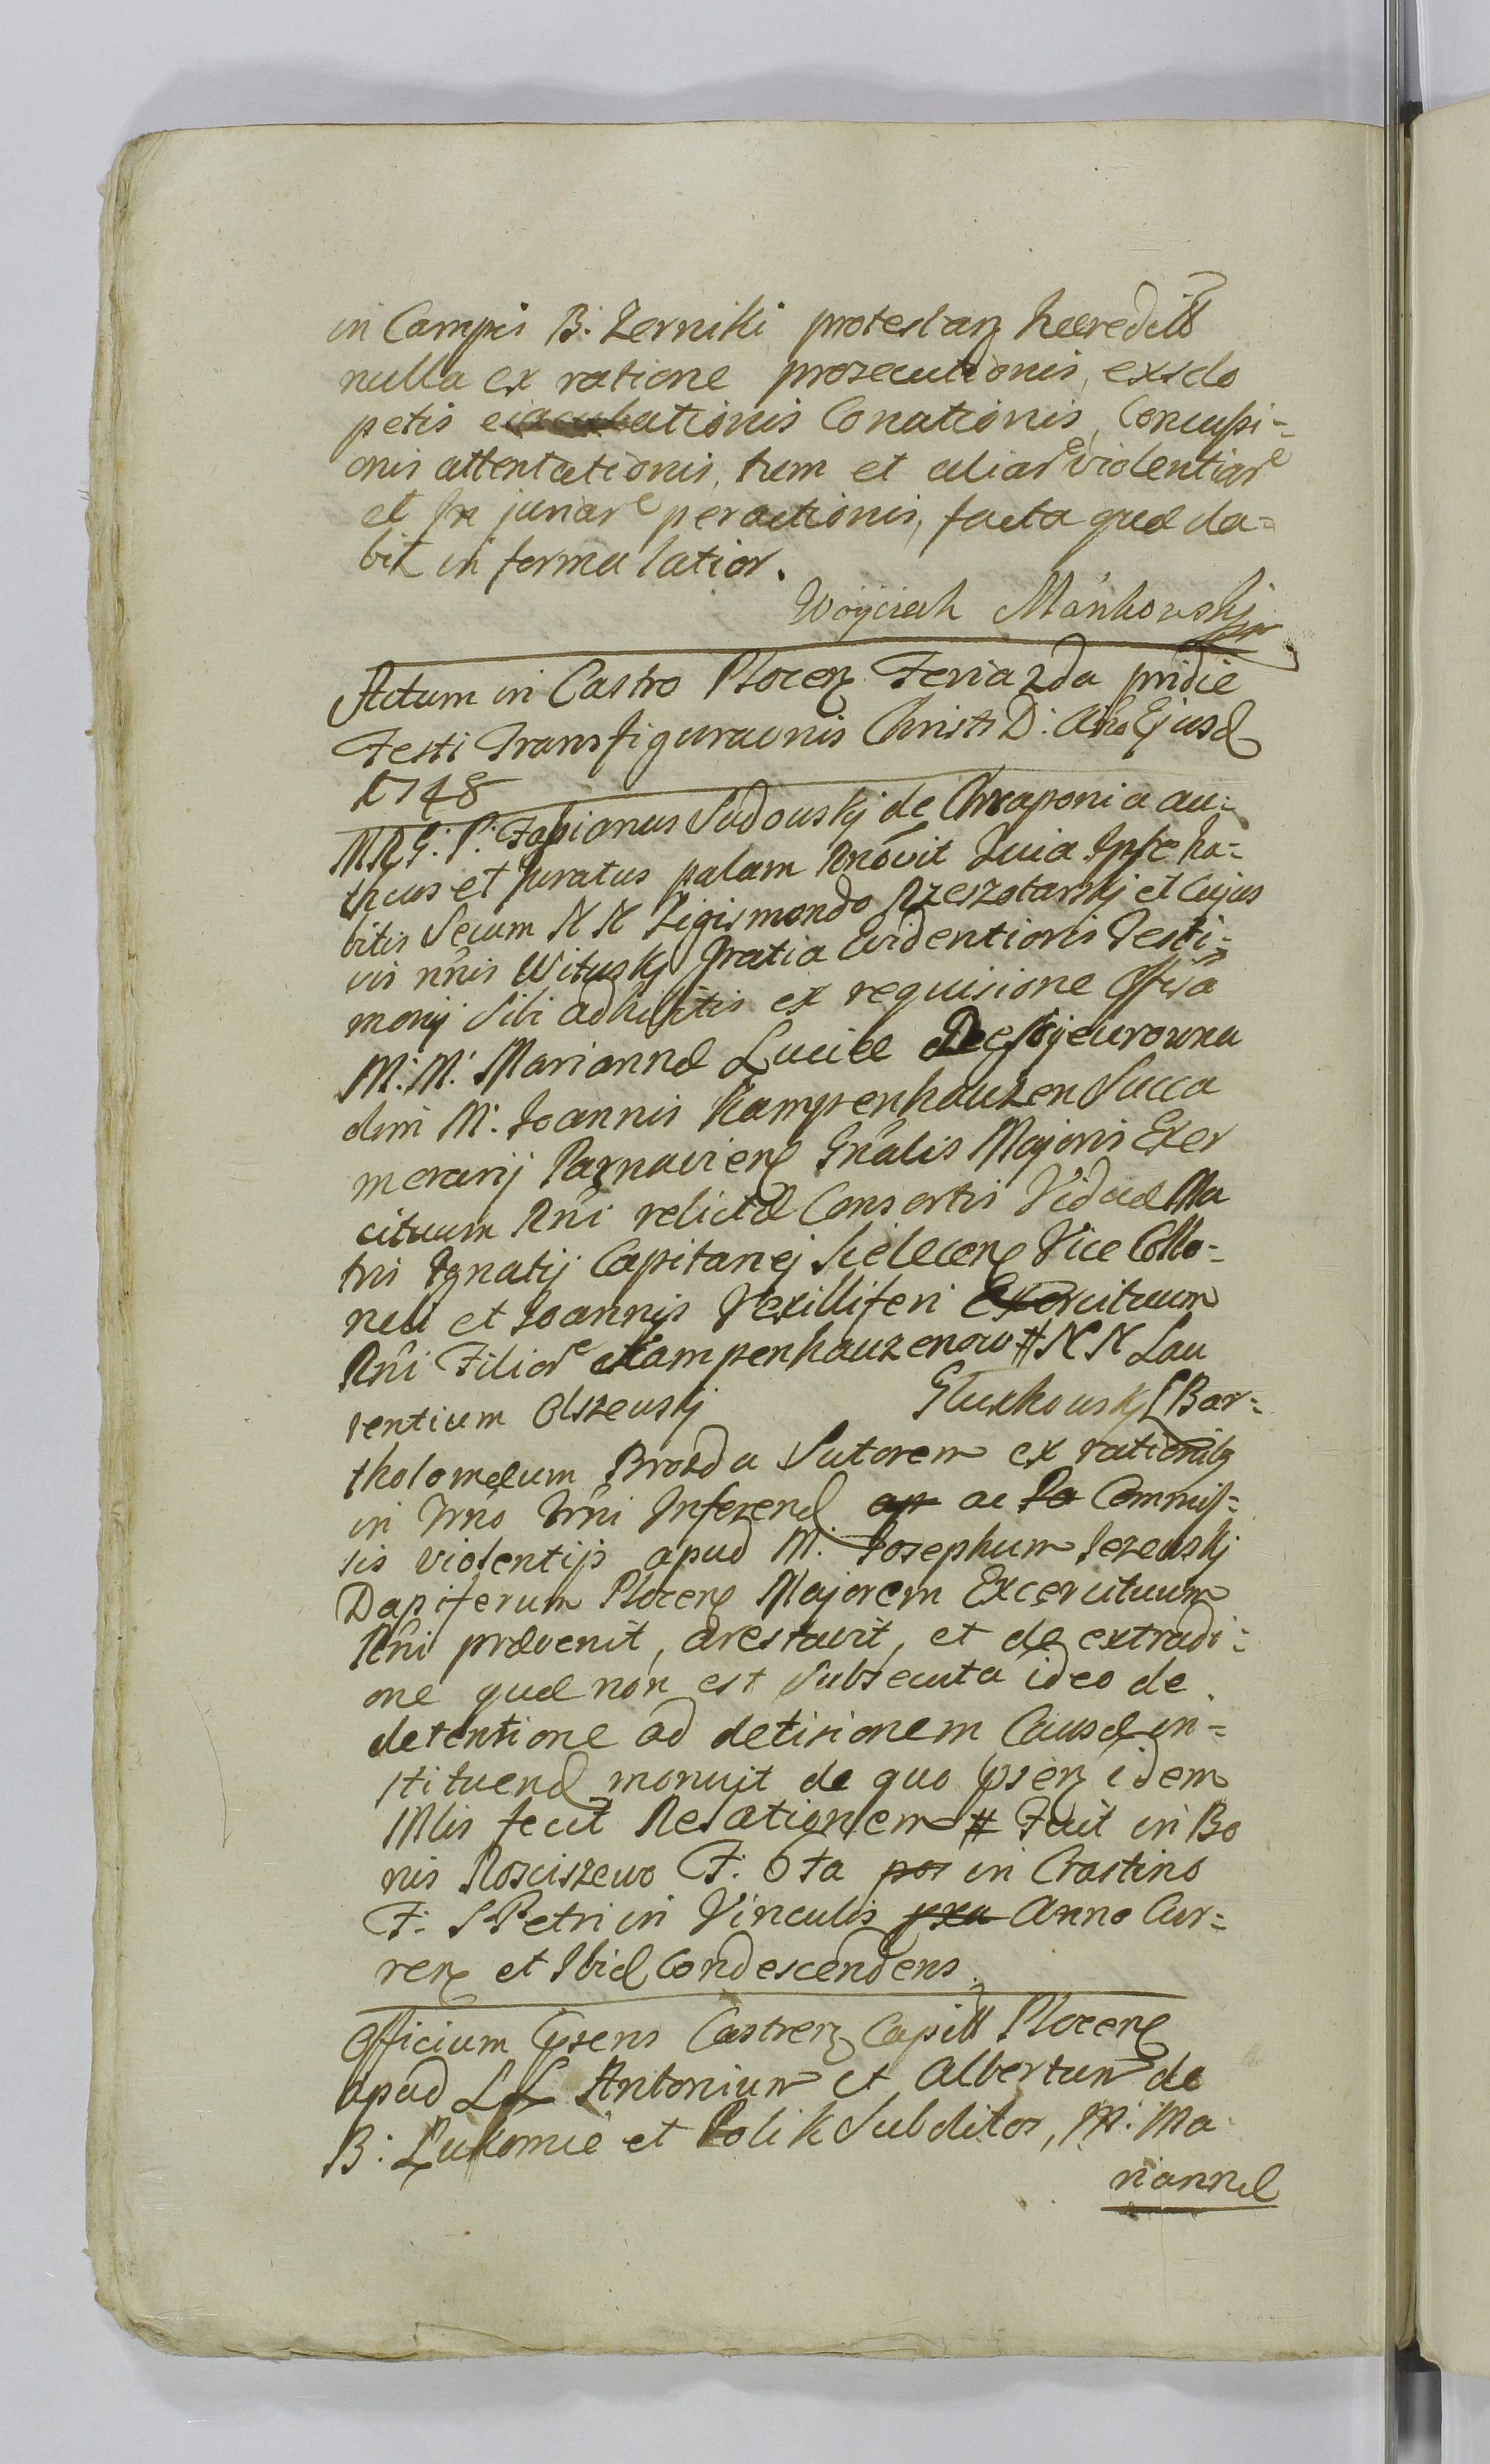 in Campis B. Zerniki protestanz hæredill
nulla ex ratione prosecutionis, exsclo
petis eiaculationis Conationis, Concussi-
onis attentationis, tum et aliar violentiar
et In juriar peractionis, facta quæ da=
bit in forma latior.
Woyciech Mańkowskj
Actum in Castro Plocenz Feria 2da pridie
Festi Transfiguraonis Christi D: Ano Ejusd
1748
MRG: P: Fabianus Sadouskj de Chraponia au-
thcus et Juratus palam Rnovit Quia Ipse ha-
bitis Secum N N Zigismondo Rzeszotarskj et Cujus
vis nnis Wituskj Gratia Evidentioris Testi-
monij Sibi adhibitis ex requisione Offisa
M: M: Mariannæ Luciæ
olim M: Joannis Kampenhauzen Succa
merarij Parnaviens Gnalis Majoris Exer
cituum Rni relictæ Consortis Viduæ Ma
tris Ignatij Capitanej Sielecens Vice Collo-
neli et Joannis Vexilliferi Exercituum
Rni Filior Kampenhauzenow # N N Lau
rentium Olszeuskj Gluxkouskj Bar-
tholomæum Brozda Sutorem ex rationibz
in Trno Trni Inferend ac Commis-
sis violentijs apud M. Josephum Jezeuskj
Dapiferum Plocens Majorem Excercituum
Rni prævenit, arestavit, et de extradi-
one quæ non est Subsecuta ideo de
detentione ad detisionem Causæ in-
stituend monuit de quo psenz idem
Mlis fecit Relationem # Fuit in Bo
nis Rosciszewo F: 6ta pos in Crastino
F: S Petri in Vinculis pxa Anno Cur-
rens et Ibid Condescendens.
Officium Cpsens Castrenz Capill Plocens
apud LL Antonium et Albertum de
B: Lukomie et Polik Subditos, M: Ma
riannæ